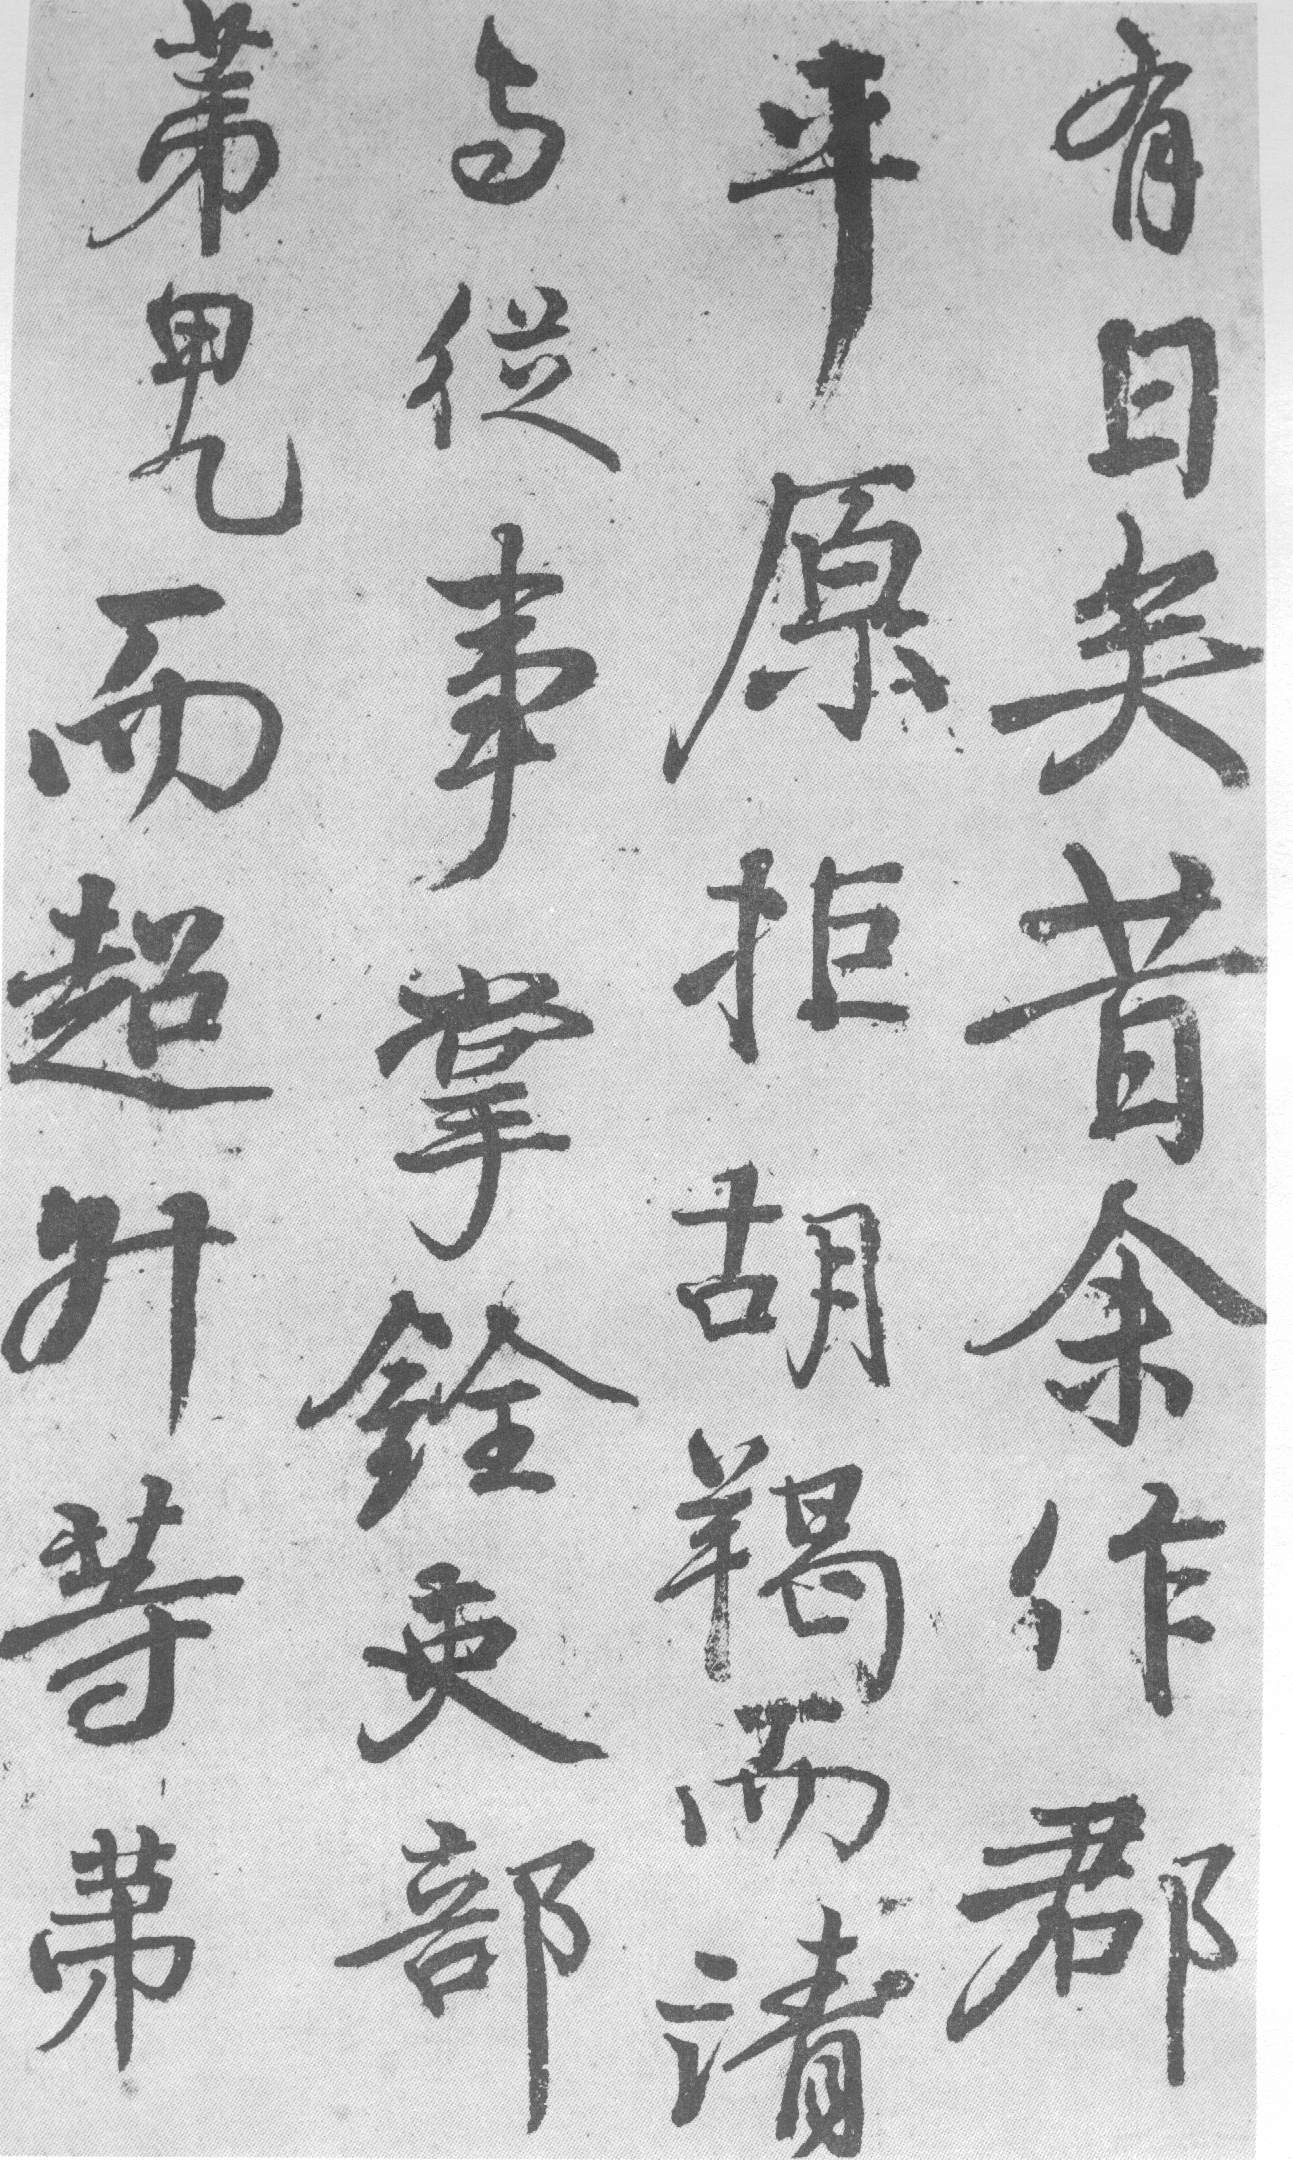 有日矣昔余作郡
平原拒胡羯而請
与從事掌銓吏部
第甲而超升等第